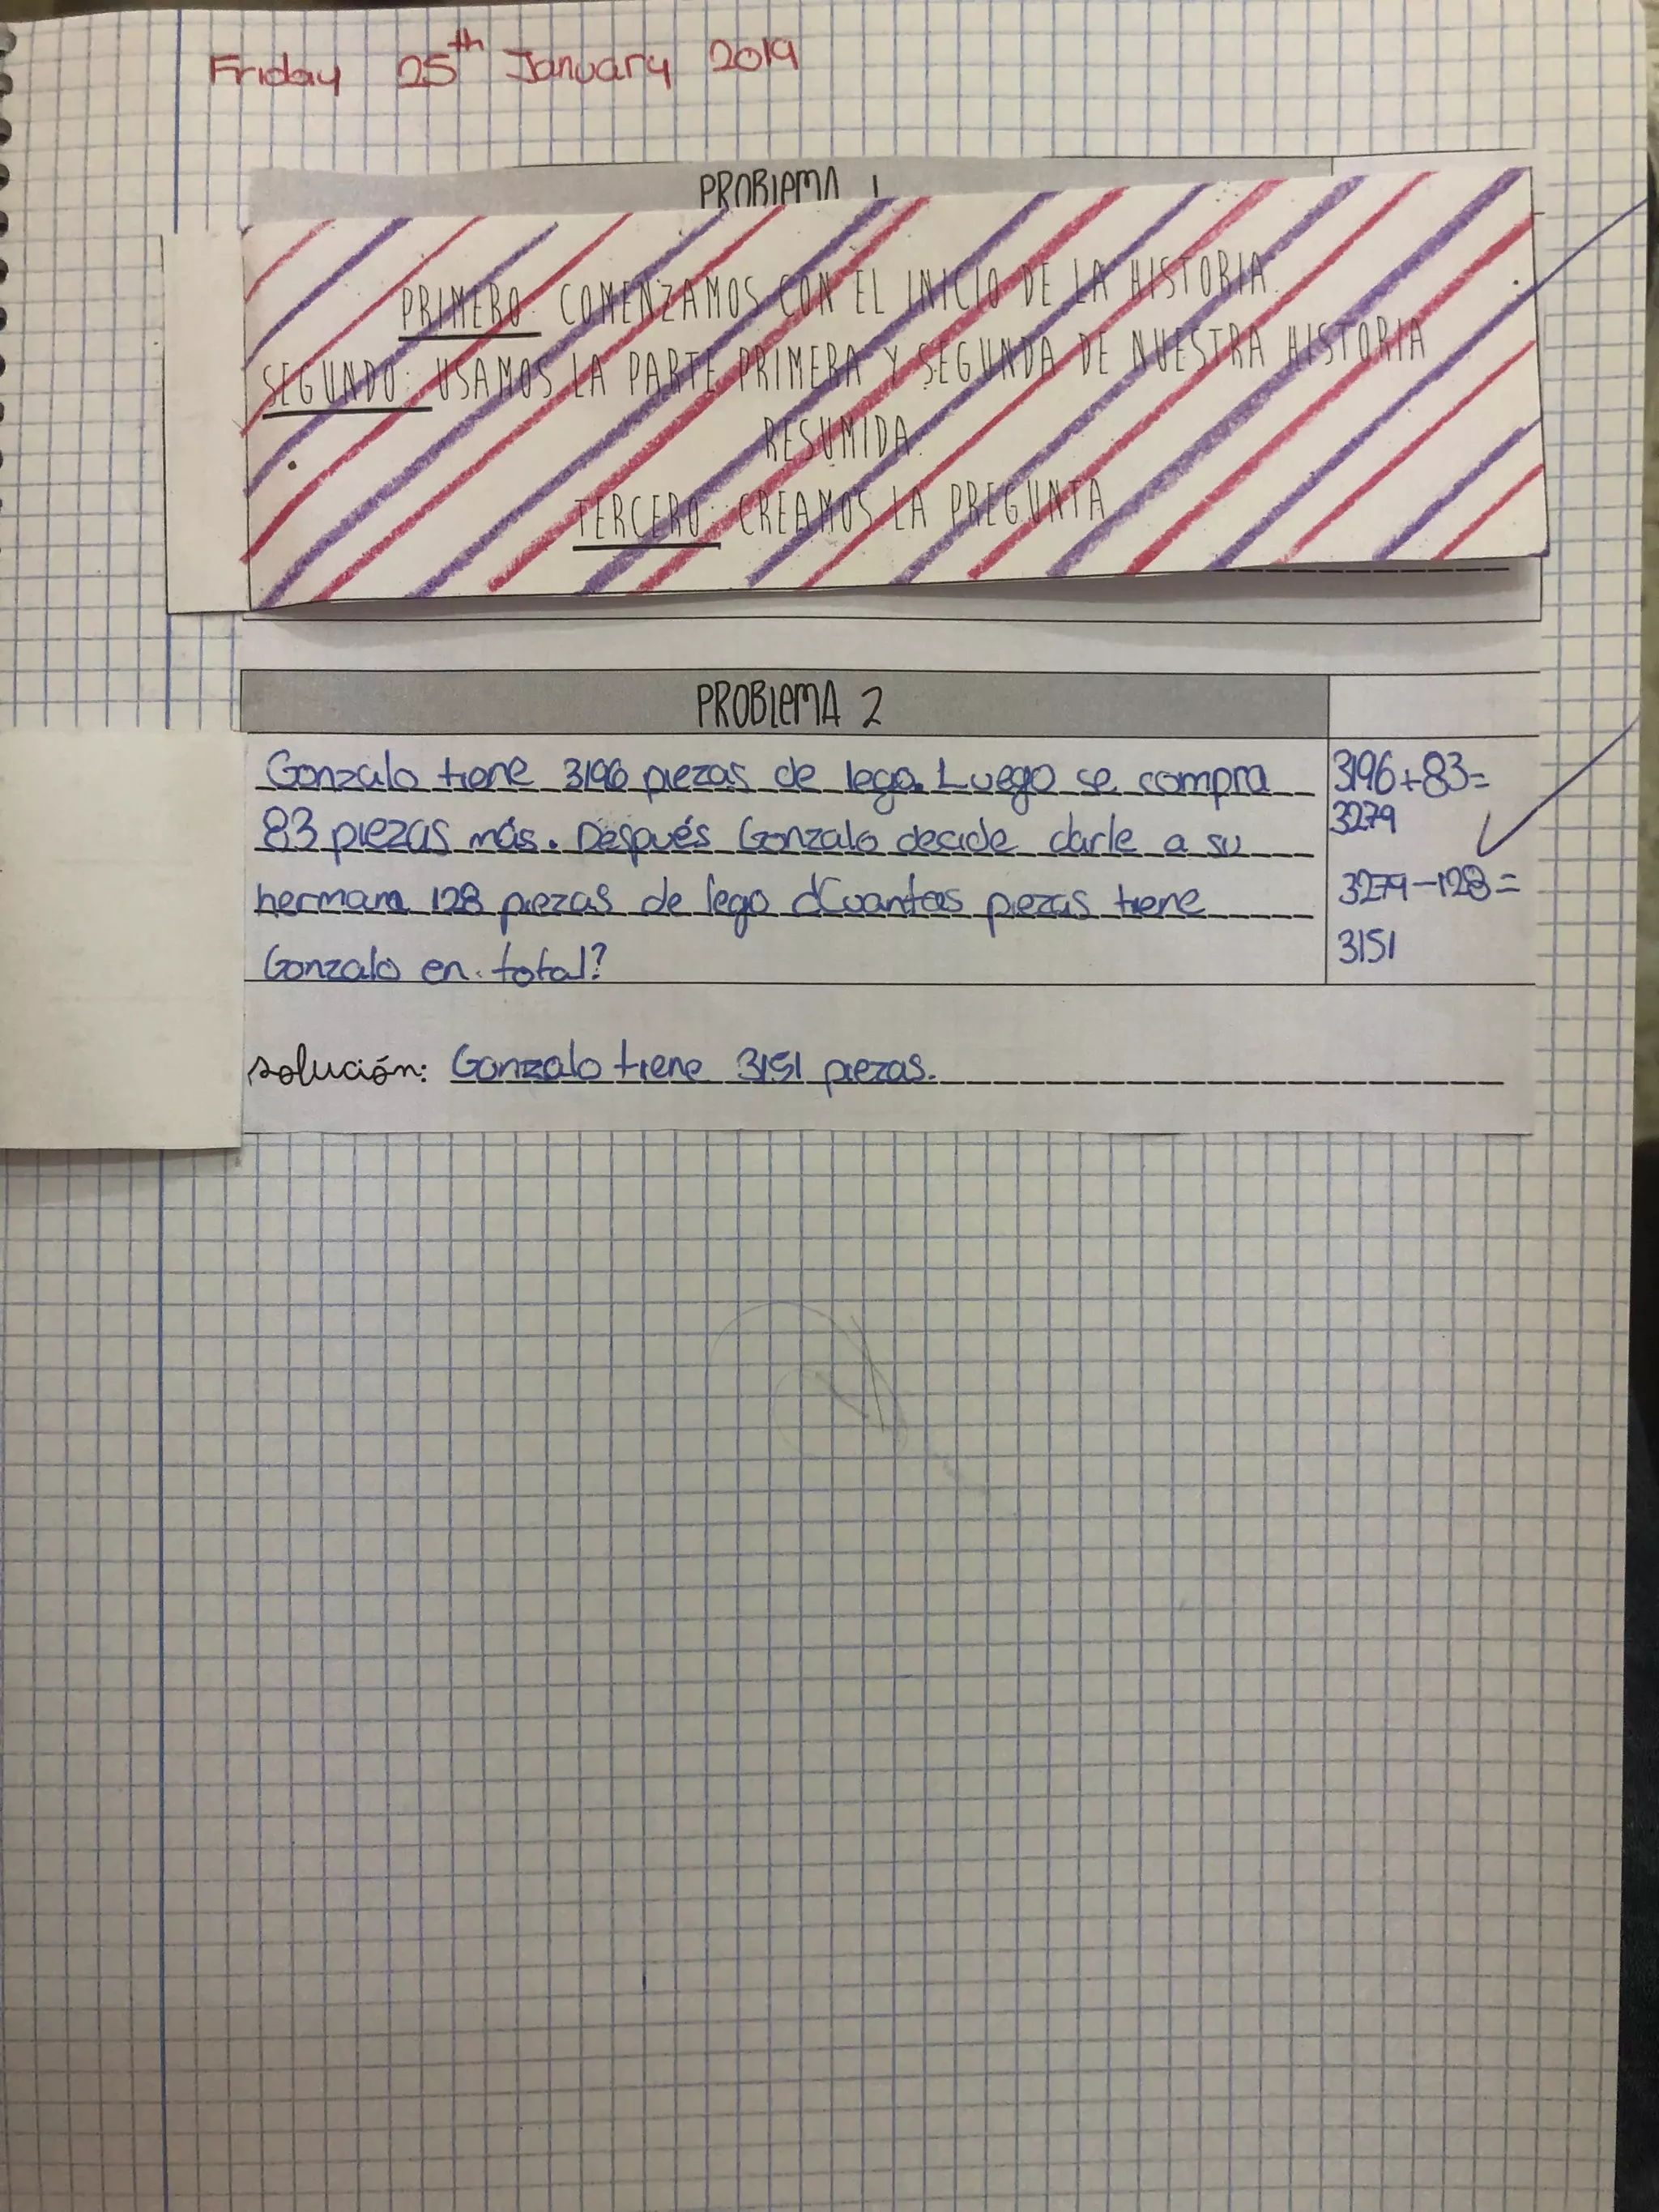 Friday 25th January 2019
PROBLEMA 1
PRIMERO: COMENZAMOS CON EL INICIO DE LA HISTORIA.
SEGUNDO: USAMOS LA PARTE PRIMERA Y SEGUNDA DE NUESTRA HISTORIA
RESUMIDA.
TERCERO: CREAMOS LA PREGUNTA
PROBLEMA 2
Gonzalo tiene 3196 piezas de lego. Luego se compra
83 piezas más. Después Gonzalo decide darle a su
hermana 128 piezas de lego ¿Cuantas piezas tiene
Gonzalo en total?
3196+83=
3279
3279-128=
3151
solución: Gonzalo tiene 3151 piezas.